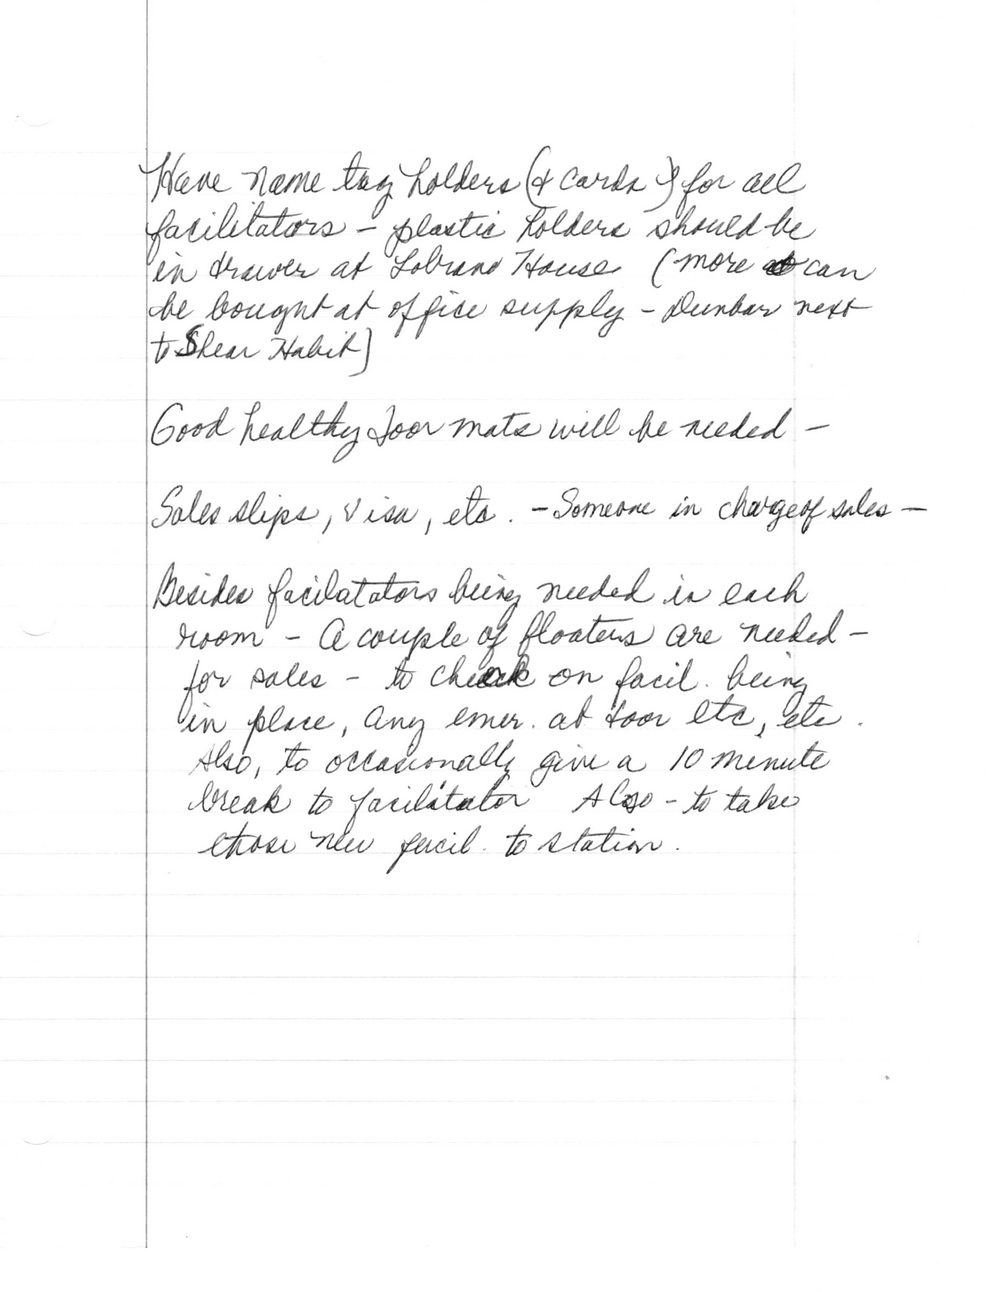 Have name tag holders (& cards) for all
facilitators - plastic holders should be
in drawer at Lobrano House (more can
be bought at office supply - Dunbar next
to Shear Habit)
Good healthy door mats will be needed -
Sales slips, visa, etc. - Someone in charge of sales -
Besides facilatators being needed in each
room - A couple of floaters are needed -
for sales - to check on facil. being
in place, any emer. at door etc, etc.
Also, to occasionally give a 10 minute
break to facilitator Also - to take
those new facil. to station.